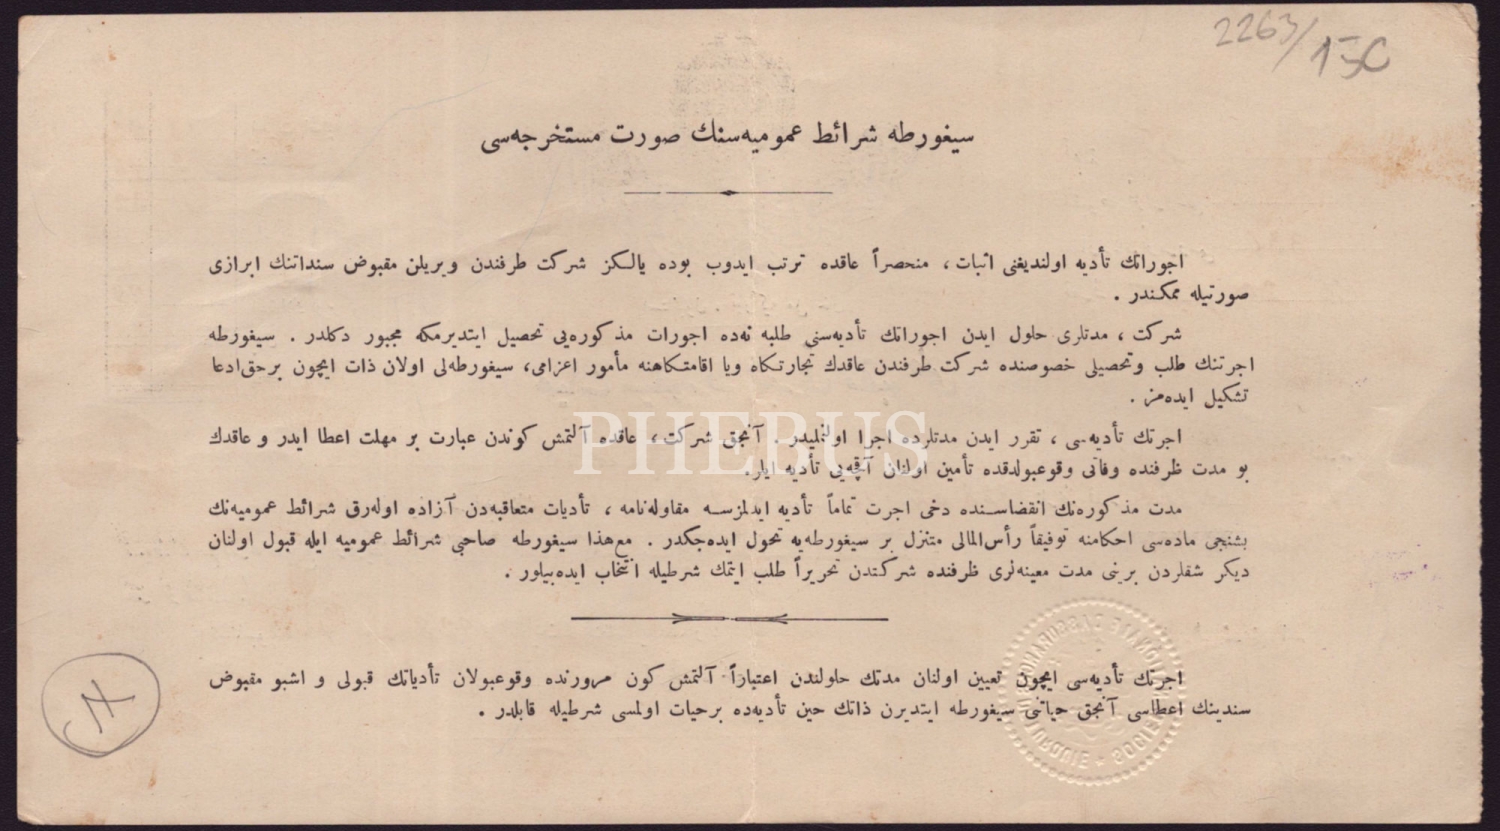 2263/150
سيغورطه شرائط عموميه‌سنك صورت مستخرجه‌سى
اجوراتك تأديه اولنديغنى اثبات ، منحصراً عاقده ترتب ايدوب بوده يالكز شركت طرفندن ويريلن مقبوض سنداتنك ابرازى
صورتيله ممكندر .
شركت ، مدتلرى حلول ايدن اجوراتك تأديه‌سنى طلبه نه‌ده اجورات مذكوره‌يى تحصيل ايتديرمكه مجبور دكلدر . سيغورطه
اجرتنك طلب وتحصيلى خصوصنده شركت طرفندن عاقدك تجارتكاه ويا اقامتكاهنه مأمور اعزامى، سيغورطه‌لى اولان ذات ايچون برحق ادعا
تشكيل ايده‌مز .
اجرتك تأديه‌سى ، تقرر ايدن مدتلرده اجرا اولنمليدر . آنجق شركت ، عاقده آلتمش كوندن عبارت بر مهلت اعطا ايدر و عاقدك
بو مدت ظرفنده وفاتى وقوعبولدقده تأمين اولنان آقچه‌يى تأديه ايلر.
مدت مذكوره‌نك انقضاسنده دخى اجرت تماماً تأديه ايدلمزسه مقاوله‌نامه ، تأديات متعاقبه‌دن آزاده اوله‌رق شرائط عموميه‌نك
بشنجى ماده‌سى احكامنه توفيقاً رأس‌المالى متنزل بر سيغورطه‌يه تحول ايده‌جكدر . مع‌هذا سيغورطه صاحبى شرائط عموميه ايله قبول اولنان
ديكر شقلردن برينى مدت معينه‌لرى ظرفنده شركتدن تحريراً طلب ايتمك شرطيله انتخاب ايده‌بيلور .
اجرتك تأديه‌سى ايچون تعيين اولنان مدتك حلولندن اعتباراً آلتمش كون مرورنده وقوعبولان تأدياتك قبولى و اشبو مقبوض
سندينك اعطاسى آنجق حياتنى سيغورطه ايتديرن ذاتك حين تأديه‌ده برحيات اولمسى شرطيله قابلدر .
PHEBUS